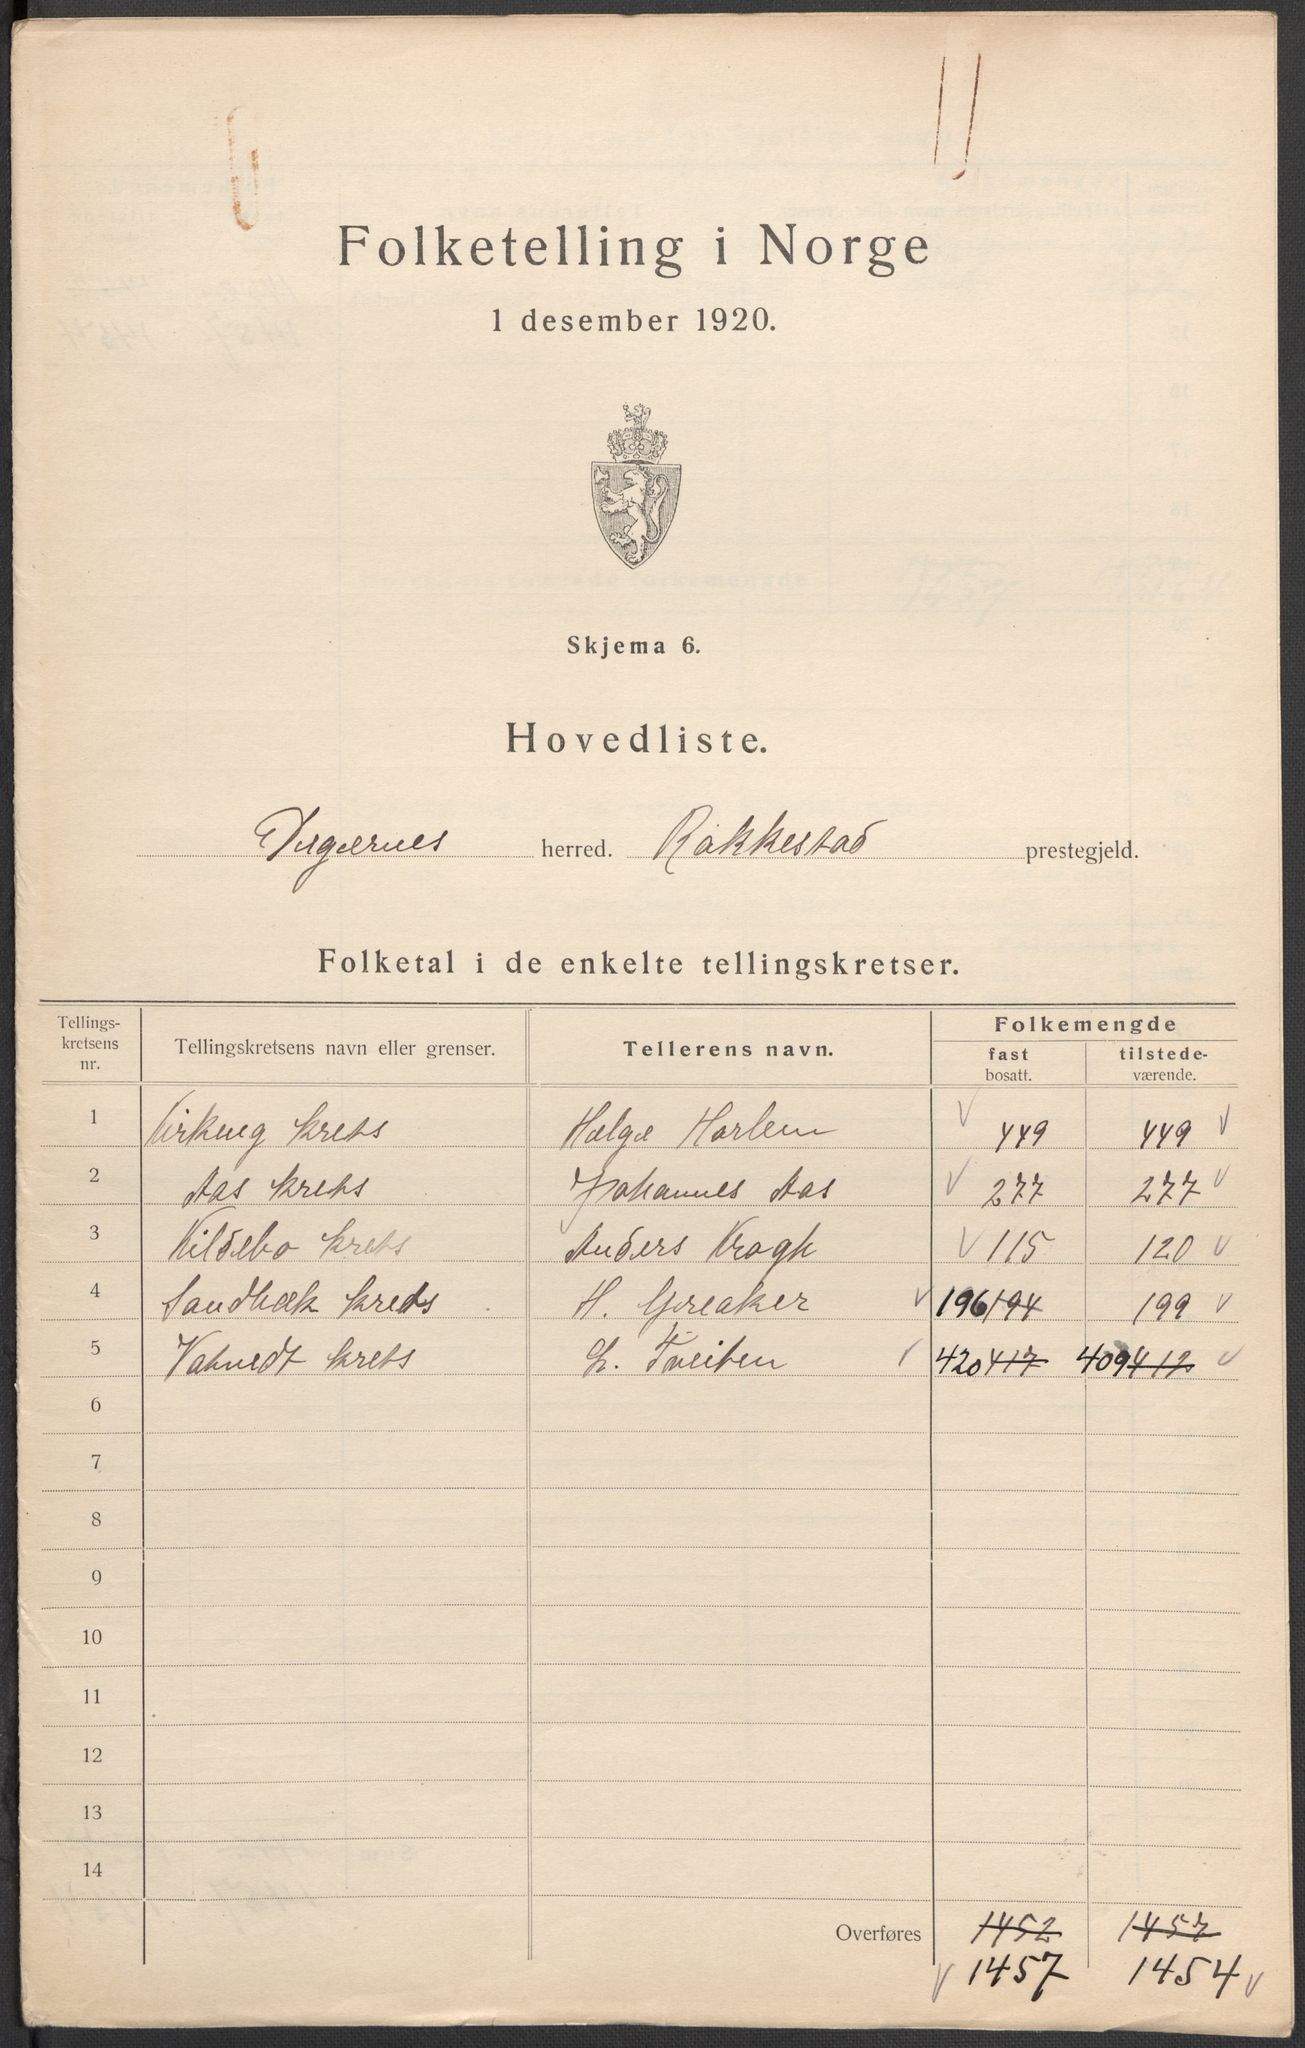 Folketelling i Norge
1 desember 1920.
Skjema 6.
Hovedliste.
Degernes herred. Rakkestad prestegjeld.
Folketal i de enkelte tellingskretser.
Tellings-kretsens nr. Tellingskretsens navn eller grenser. Tellerens navn. Folkemengde
fast bosatt. tilstede-værende.
1 Kirkeng krets Helge Harlem 449 449
2 Aas krets Johannes Aas 277 277
3 Kildebo krets Anders Kragh 115 120
4 Sandbæk kreds H. Greaker 196 194 199
5 krets L. Tveiten 420 417 409 412
6
7
8
9
10
11
12
13
14
Overføres 1452 1457
1457 1454